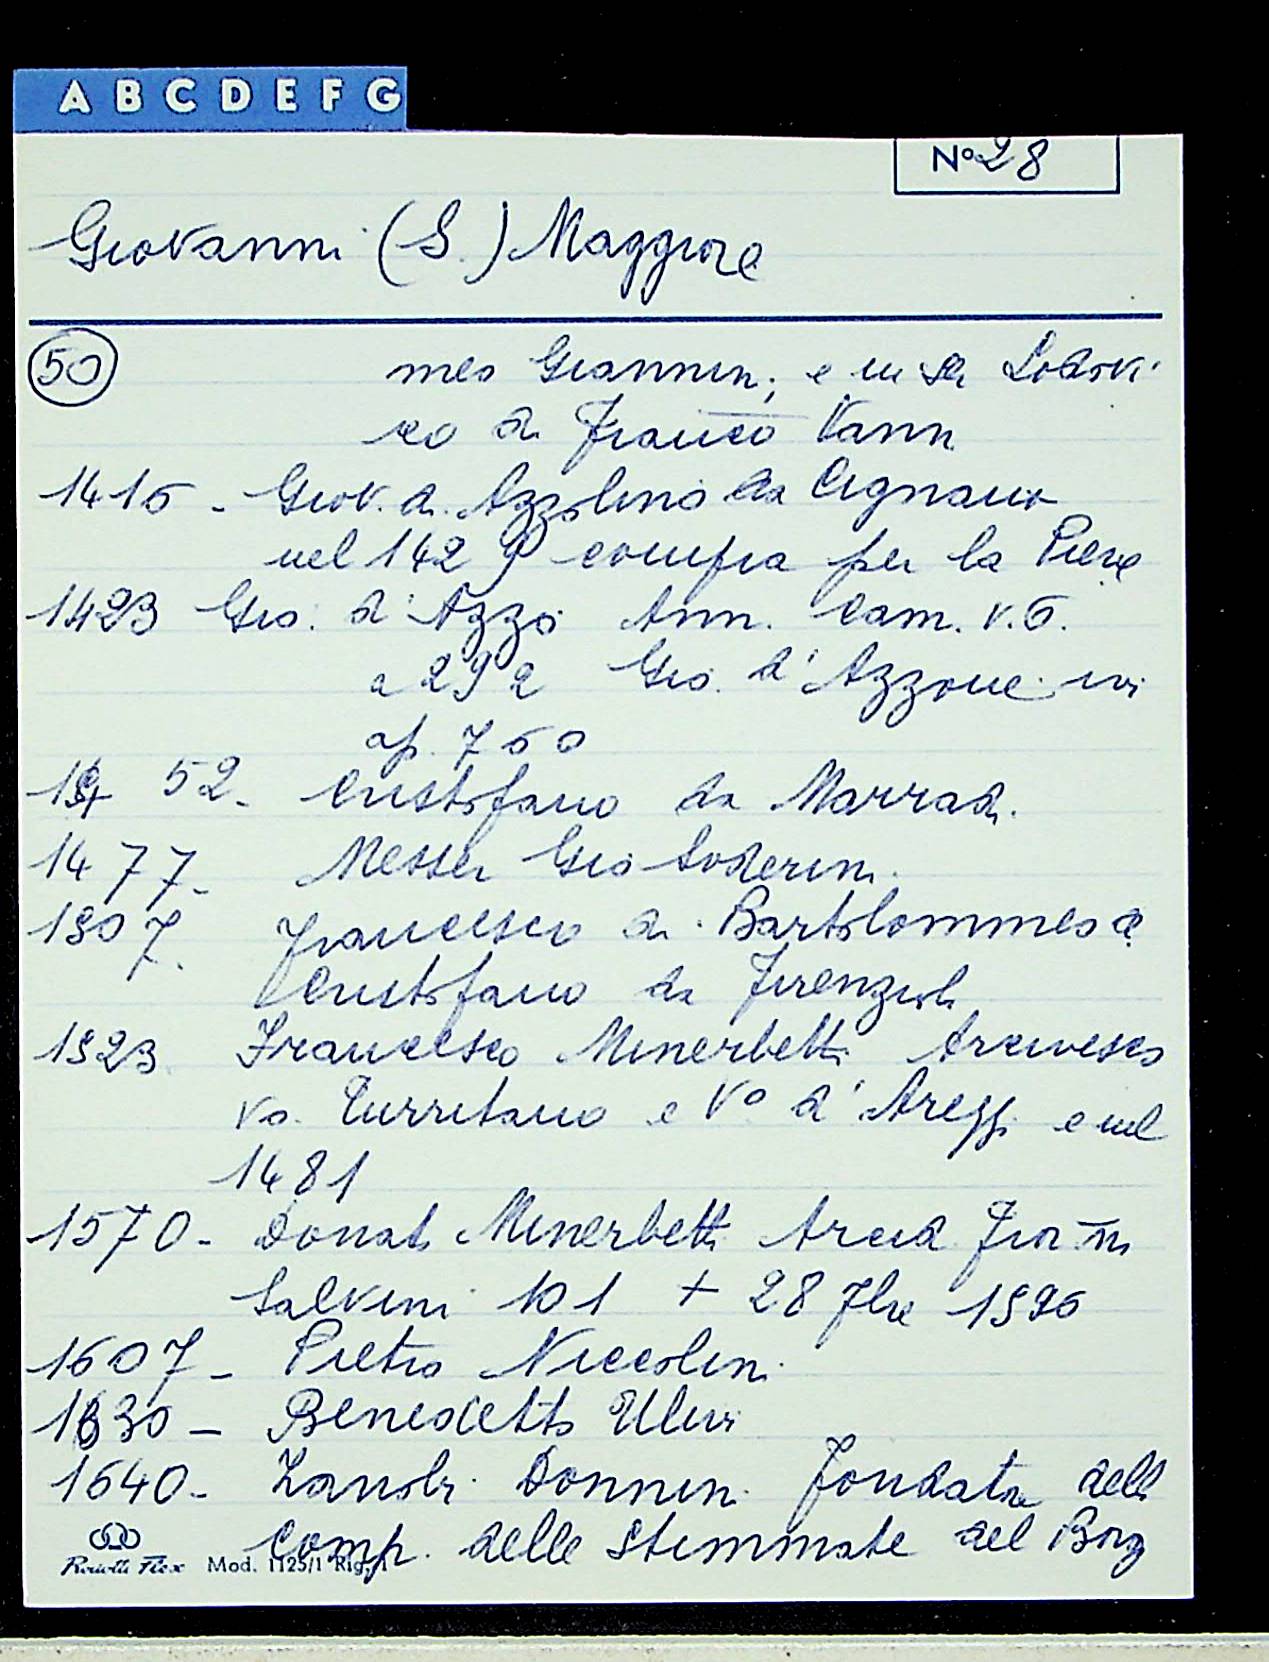 A B C D E F G
Nº 28
Giovanni (S.) Maggiore
50
meo Giannini; e in ser Lodovi
co di Franco Vanni
1415 - Giov. di Azzolino da Cignano
nel 1429 compra per la Pieve
1423 Gio. d'Azzo Ann. Cam. v. 5.
a 292 Gio. d'Azzone ivi
ap. 750
1452 - Cristofano da Marradi.
1477 - Messer Gio Soderini.
1507. Francesco di Bartolommeo di
Cristofano da Firenzuola
1523 Francesco Minerbetti Arcivesco
vo Turritano e Vº d'Arezzo e nel
1481
1570 - Donato Minerbetti Arcid. Fior
Salvini 101 + 28 7bre
1607 - Pietro Niccolini
1630 - Benedetto Ulivi
1640 - Zanobi Donnini fondatore della
Comp. delle Stimmate del Borg
Mod. 1125/1 Rig.